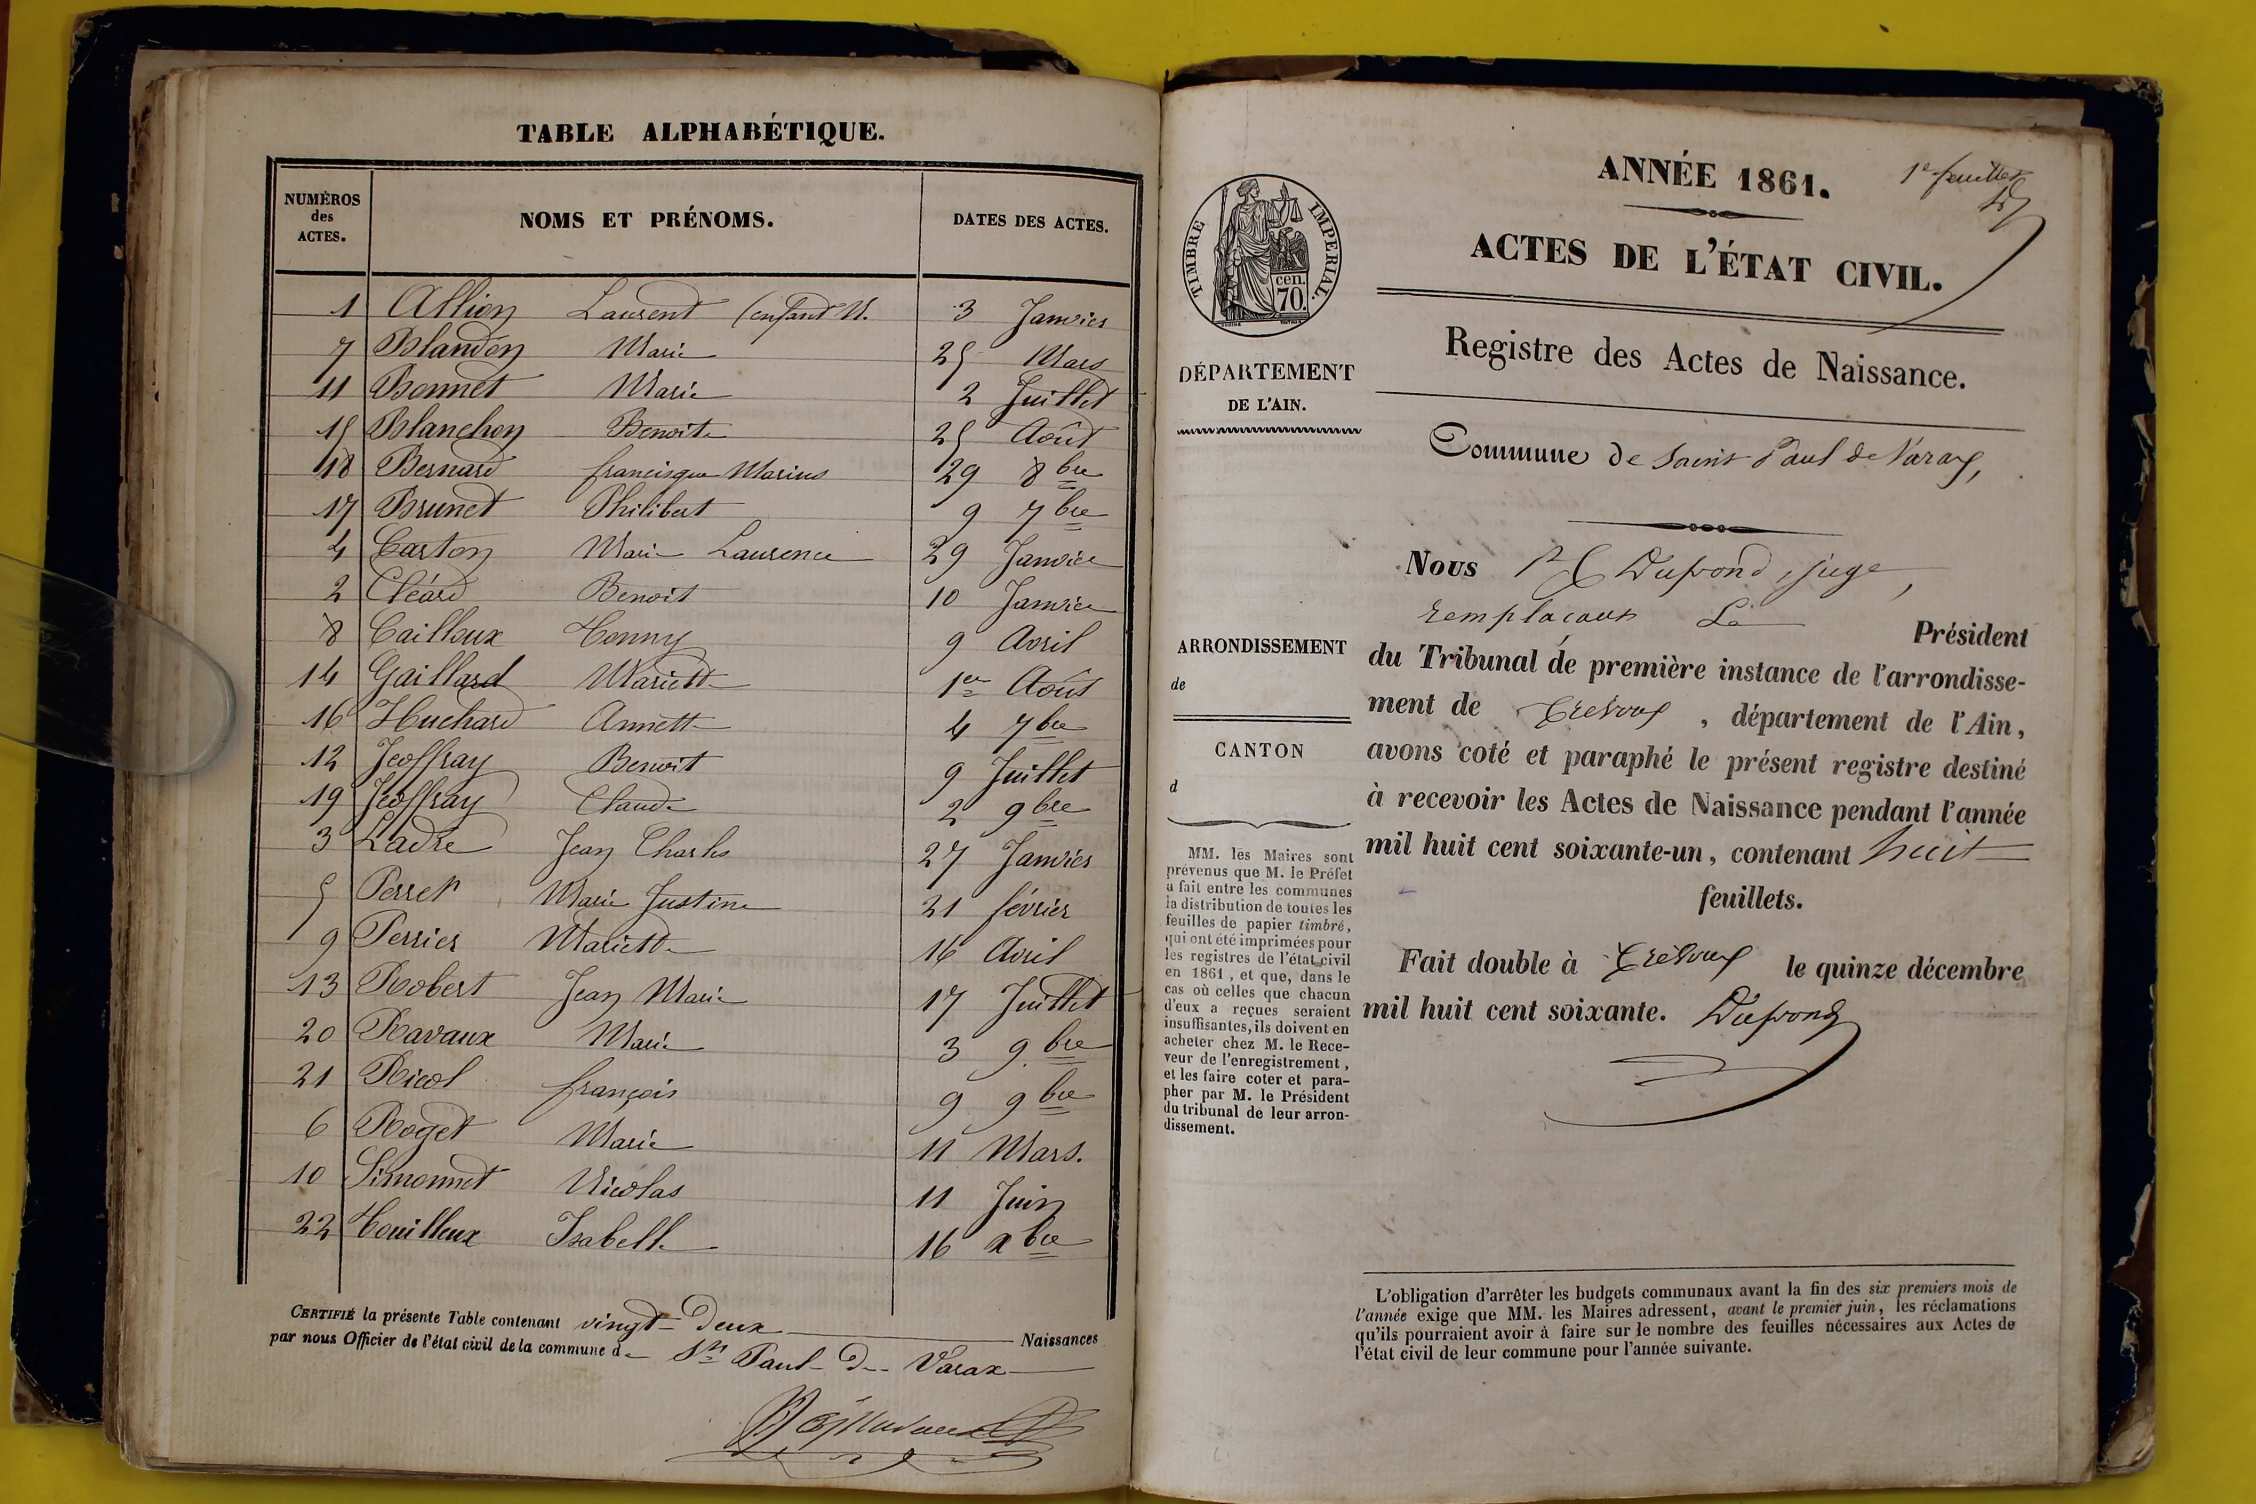 TABLE ALPHABÉTIQUE.
NUMÉROS des ACTES.
NOMS ET PRÉNOMS.
DATES DES ACTES.
1 Allion Laurent (enfant N. 3 Janvier
7 Blandon Marie 25 Mars
11 Bonnet Marie 2 Juillet
15 Blanchon Benoite 25 Août
18 Bernard francisque Marius 29 8bre
17 Brunet Philibert 9 7bre
4 Carton Marie Laurence 29 Janvier
2 Cléard Benoit 10 Janvier
8 Cailloux 9 Avril
14 Gaillard Mariette 1er Août
16 Huchard Annette 4 7bre
12 Jeoffray Benoit 9 Juillet
19 Jeoffray Claude 2 9bre
3 Ladre Jean Charles 27 Janvier
5 Perret Marie Justine 21 février
9 Perrier Mariette 16 Avril
13 Robert Jean Marie 17 Juillet
20 Ravaux Marie 3 9bre
21 Ricol françois 9 9bre
6 Roget Marie 11 Mars.
10 Simonnet Nicolas 11 Juin
22 Touilloux Isabelle 16 xbre
CERTIFIÉ la présente Table contenant vingt-deux Naissances
par nous Officier de l'état civil de la commune de St Paul de Varax
1er feuillet
ANNÉE 1861.
ACTES DE L'ÉTAT CIVIL.
Registre des Actes de Naissance.
TIMBRE IMPERIAL.
cen.
70.
DÉPARTEMENT
DE L'AIN.
Commune de Saint Paul de Varax,
Nous Dupond, juge,
remplaçant Le Président
du Tribunal de première instance de l'arrondisse-
ment de Trévoux, département de l'Ain,
avons coté et paraphé le présent registre destiné
à recevoir les Actes de Naissance pendant l'année
mil huit cent soixante-un, contenant huit
feuillets.
Fait double à Trévoux le quinze décembre
mil huit cent soixante. Dupond
ARRONDISSEMENT
de
CANTON
d
MM. les Maires sont
prévenus que M. le Préfet
a fait entre les communes
la distribution de toutes les
feuilles de papier timbré,
qui ont été imprimées pour
les registres de l'état civil
en 1861, et que, dans le
cas où celles que chacun
d'eux a reçues seraient
insuffisantes, ils doivent en
acheter chez M. le Rece-
veur de l'enregistrement,
et les faire coter et para-
pher par M. le Président
du tribunal de leur arron-
dissement.
L'obligation d'arrêter les budgets communaux avant la fin des six premiers mois de
l'année exige que MM. les Maires adressent, avant le premier juin, les réclamations
qu'ils pourraient avoir à faire sur le nombre des feuilles nécessaires aux Actes de
l'état civil de leur commune pour l'année suivante.